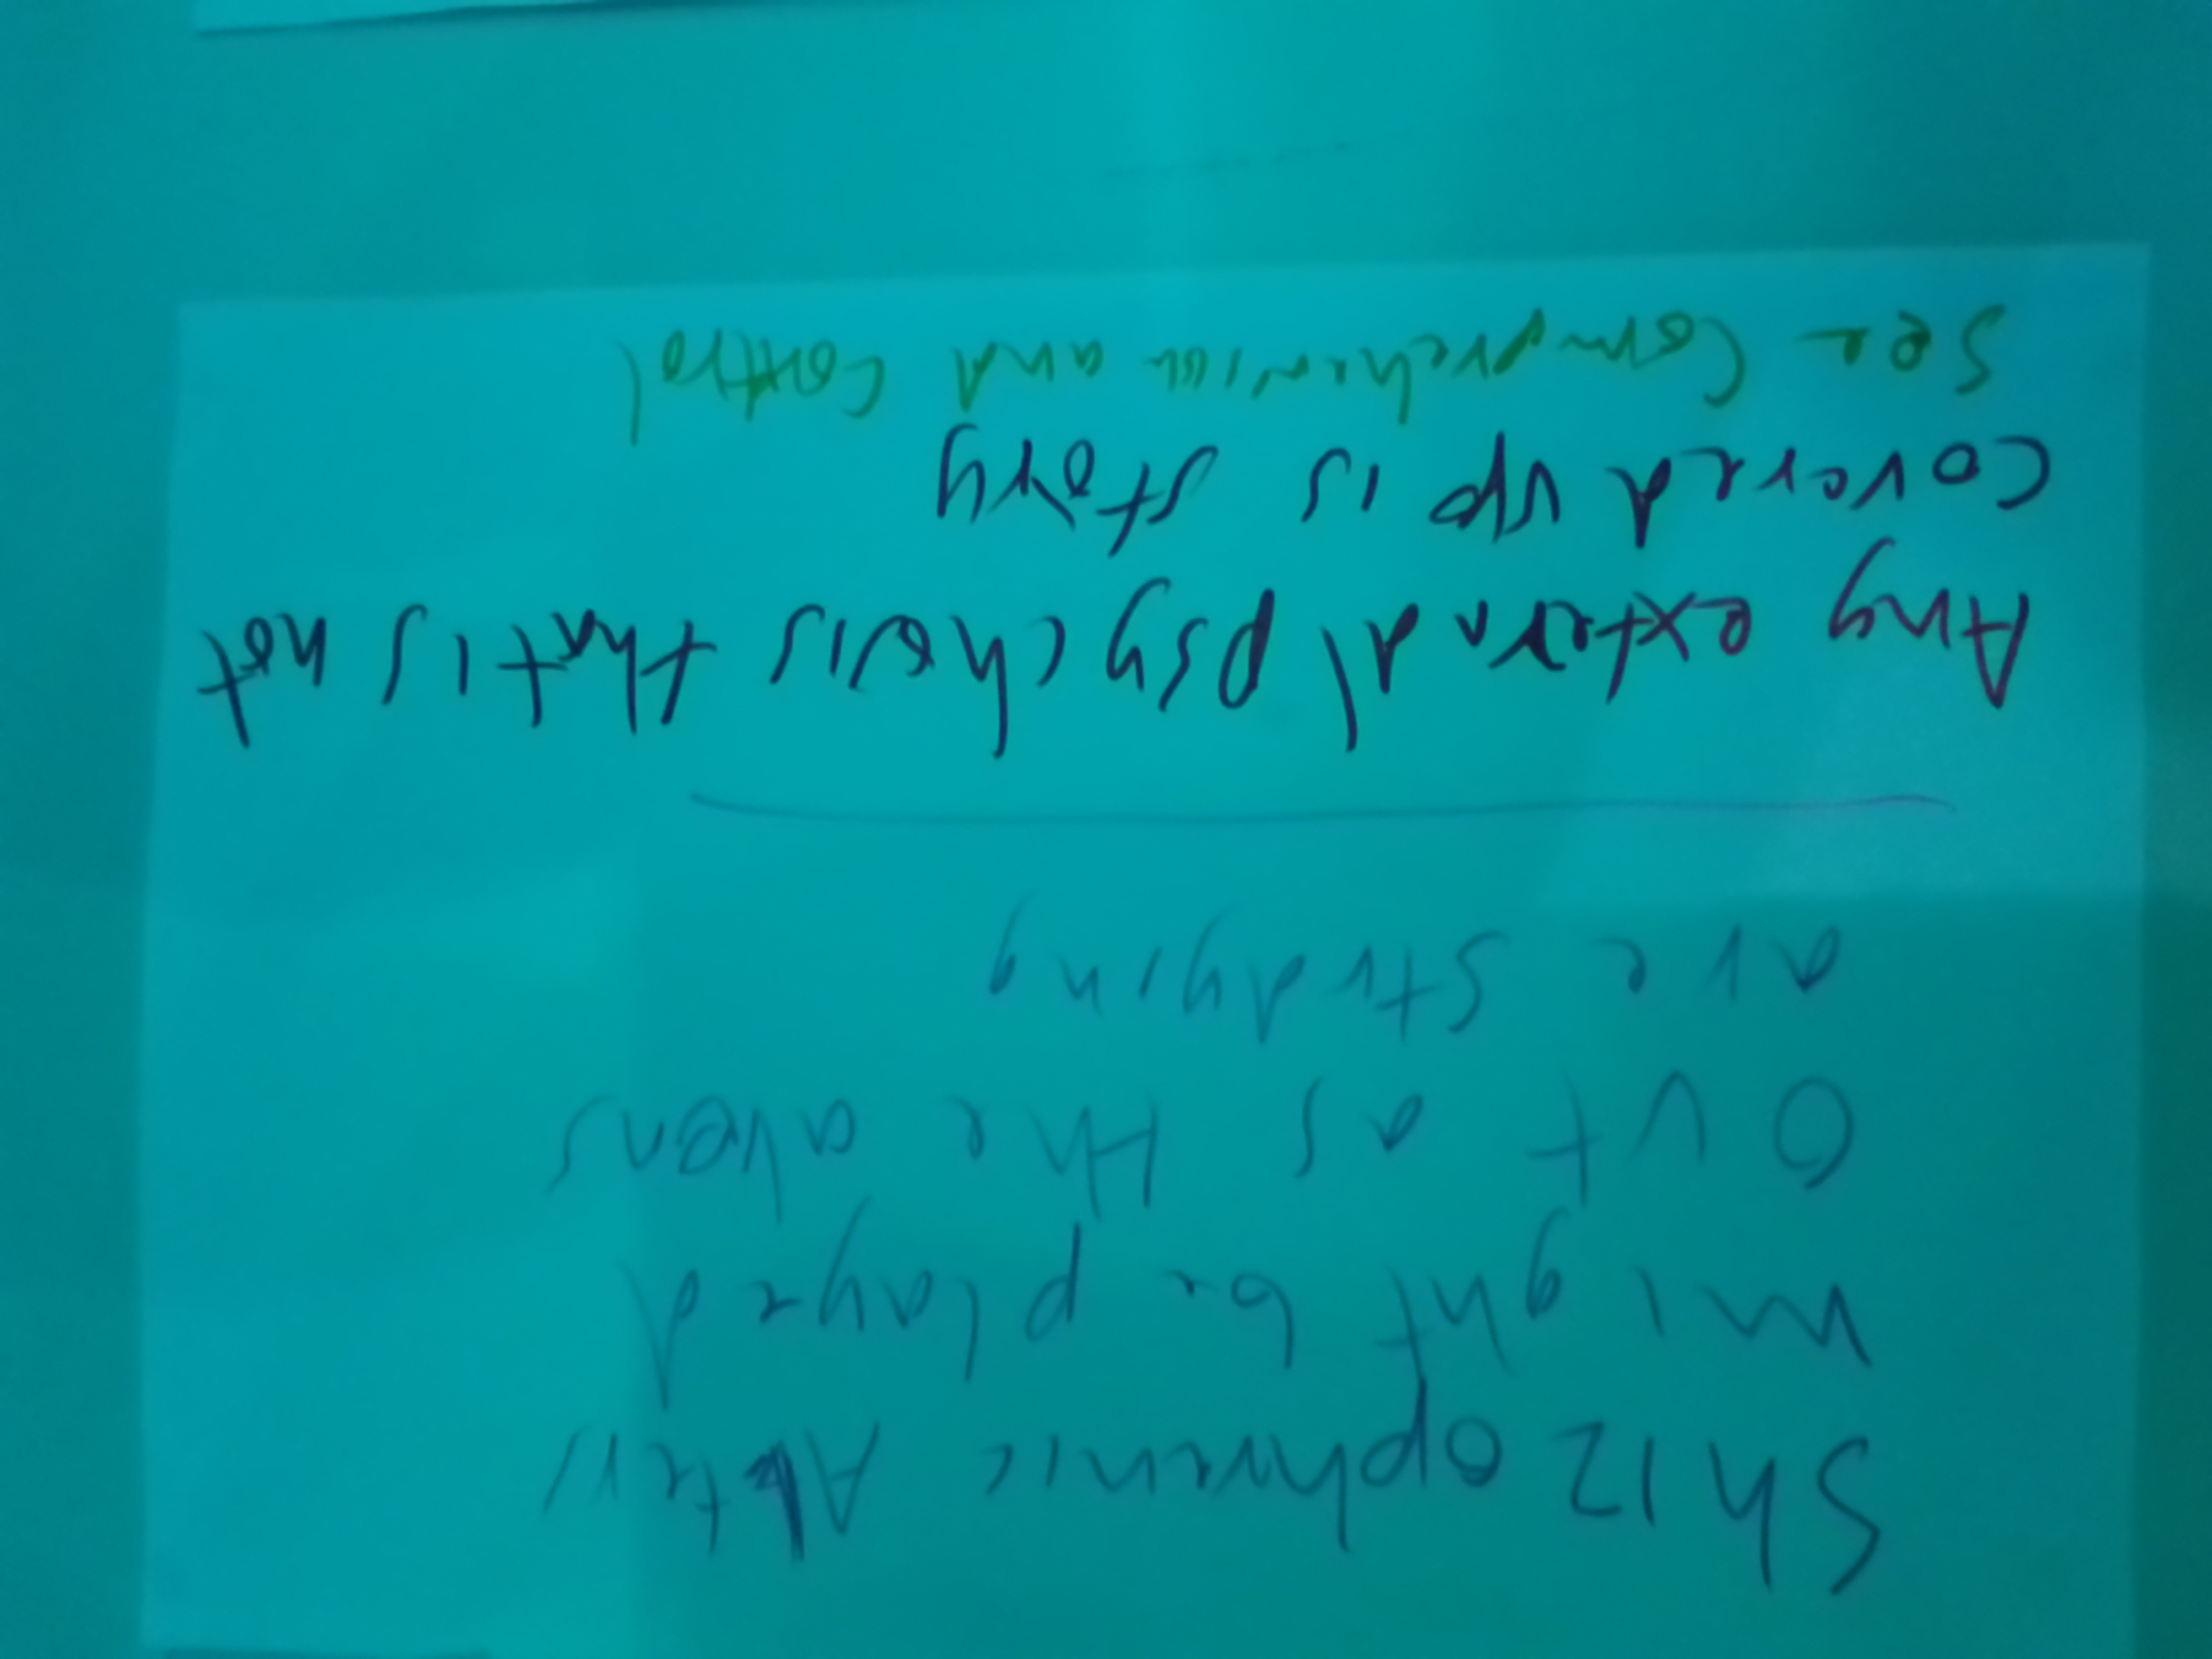 Shizophrenic
might be played
Out as the aliens
are studying
Any external psychosis that is not
covered up is story
See Comprehension and control